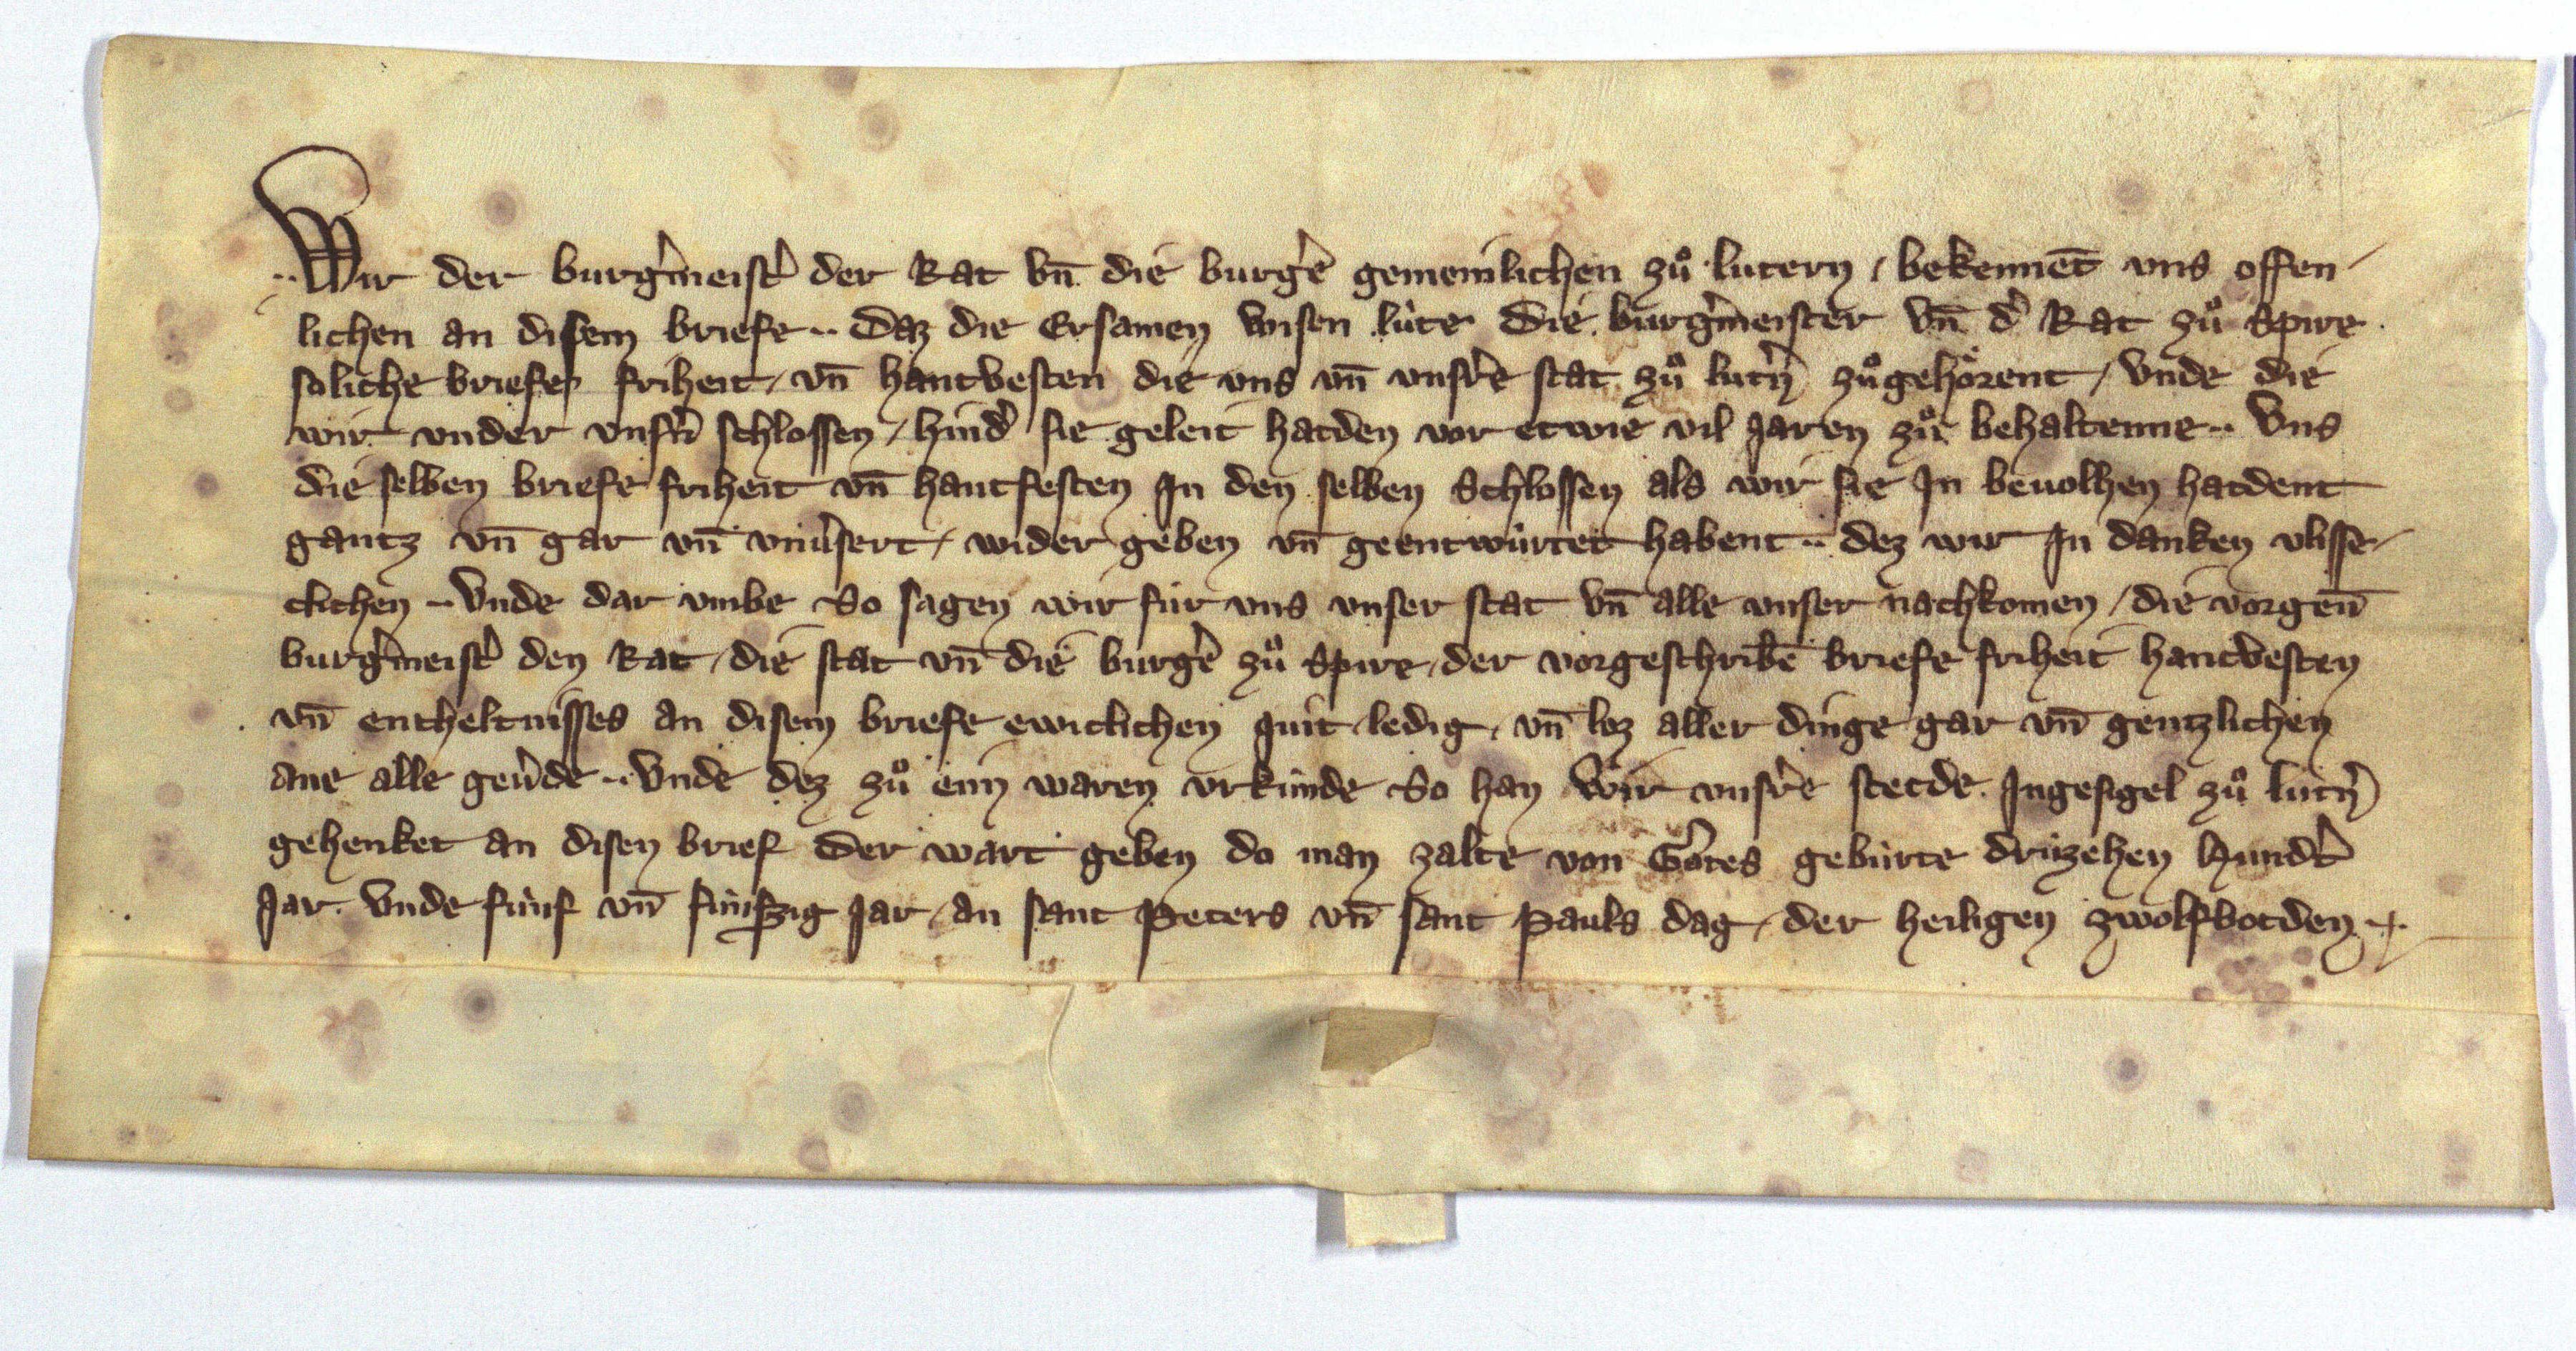 .. Wir der burg̾meist̾ der Rat vn̄ die burg̾e gemeinlichen zů lutern / bekennēt vns offen-
lichen an disem briefe .. Daz die Ersamen wisen lúte Die burg̾meister vn̄ d̾ Rat zů Spire
soliche briefe friheit / vn̄ hantvesten die vns vn̄ vnsr̾e stat zů lut̾n zůgehörent / vnde die
wir vnder vnsrn̾ schlossen / hind̾ sie geleit hatden vor etwie vil Jaren zů behaltenne .. Vns
die selben briefe friheit vn̄ hantfesten In den selben Schlossen als wir sie In beuolhen hatdent
gantz vn̄ gar vn̄ vnu̾sert / wider geben vn̄ geentwúrtet habent .. dez wir In danken vlisse-
clichen .. Vnde dar vmbe So sagen wir fúr vns vnser stat vn̄ alle vnser nachkomen / die vorgen̄
burg̾meist̾ den Rat / die stat vn̄ die burg̾e zů Spire / der vorgeschribē briefe friheit hantvesten
vn̄ entheltnisses an disem briefe ewiclichen quit ledig / vn̄ loz aller dinge gar vn̄ gentzlichen
ane alle geu̾de .. Vnde dez zů eim waren vrkúnde So han Wir vnsr̾e stetde Ingesigel zů lut̾n
gehenket an disen brief Der wart geben do man zalte von Gottes gebúrte drúzehen Hundt̾
Jar Vnde fúnf vn̄ fúnfzig Jar / an sant Peters vn̄ sant Pauls dag / der heiligen zwolfbotden ..